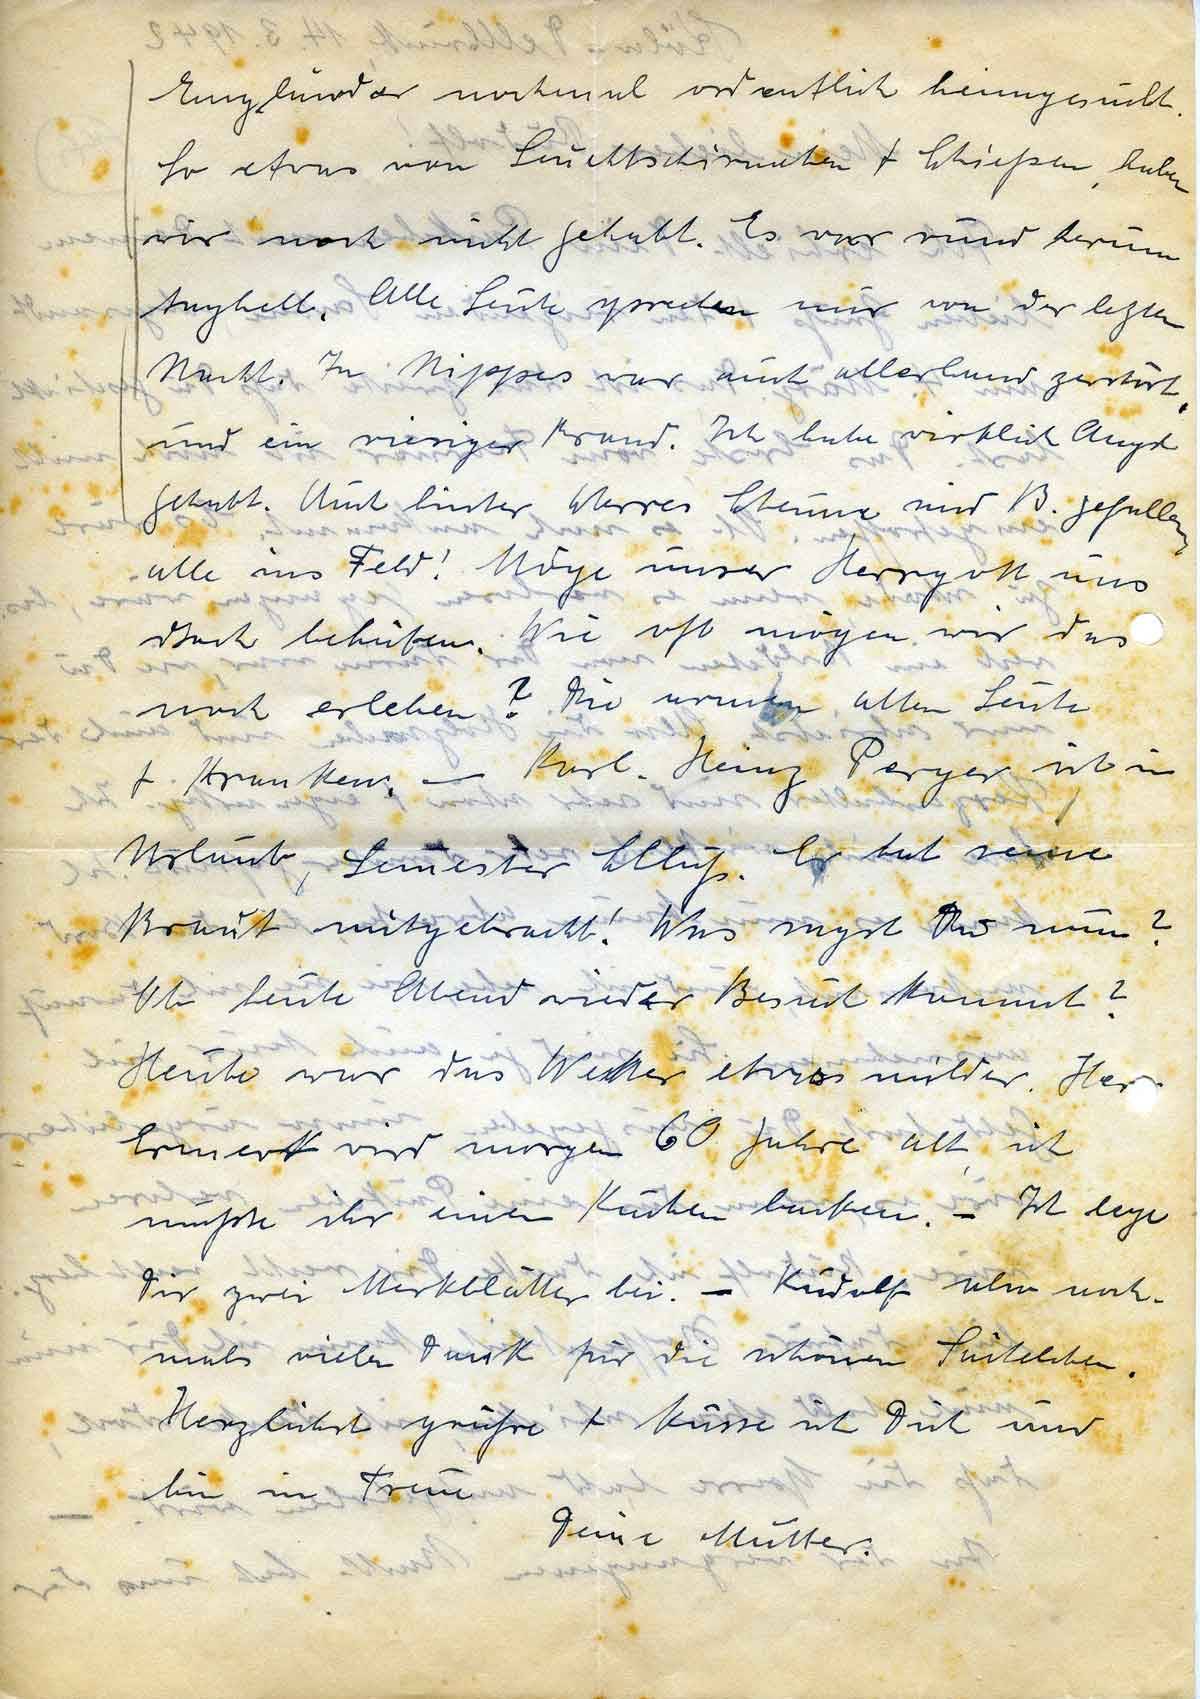 Engländer nochmal ordentlich heimgesucht.
So etwas von Leuchtschirmchen + Schießen, haben
wir noch nicht gehabt. Es war rund herum
taghell. Alle Leute sprechen nur von der letzten
Nacht. In Nippes war auch allerhand zerstört,
und ein riesiger Brand. Ich habe wirklich Angst
gehabt. Auch hinter Scheune sind B. gefallen,
alle ins Feld! Möge unser Herrgott uns
doch behüten. Wie oft mögen wir das
noch erleben? Die armen alten Leute
+ Kranken. — Karl-Heinz Perger ist in
Urlaub, Semester Schluß. Er hat seine
Braut mitgebracht! Was sagst Du nun?
Ob heute Abend wieder Besuch kommt?
Heute war das Wetter etwas milder. Herr
wird morgen 60 Jahre alt, ich
mußte ihr einen Kuchen backen. – Ich lege
Dir zwei Merkblätter bei. – Rudolf also noch-
mals vielen Dank für die schönen
Herzlichst grüße + küsse ich Dich und
bin in Treue
Deine Mutter.